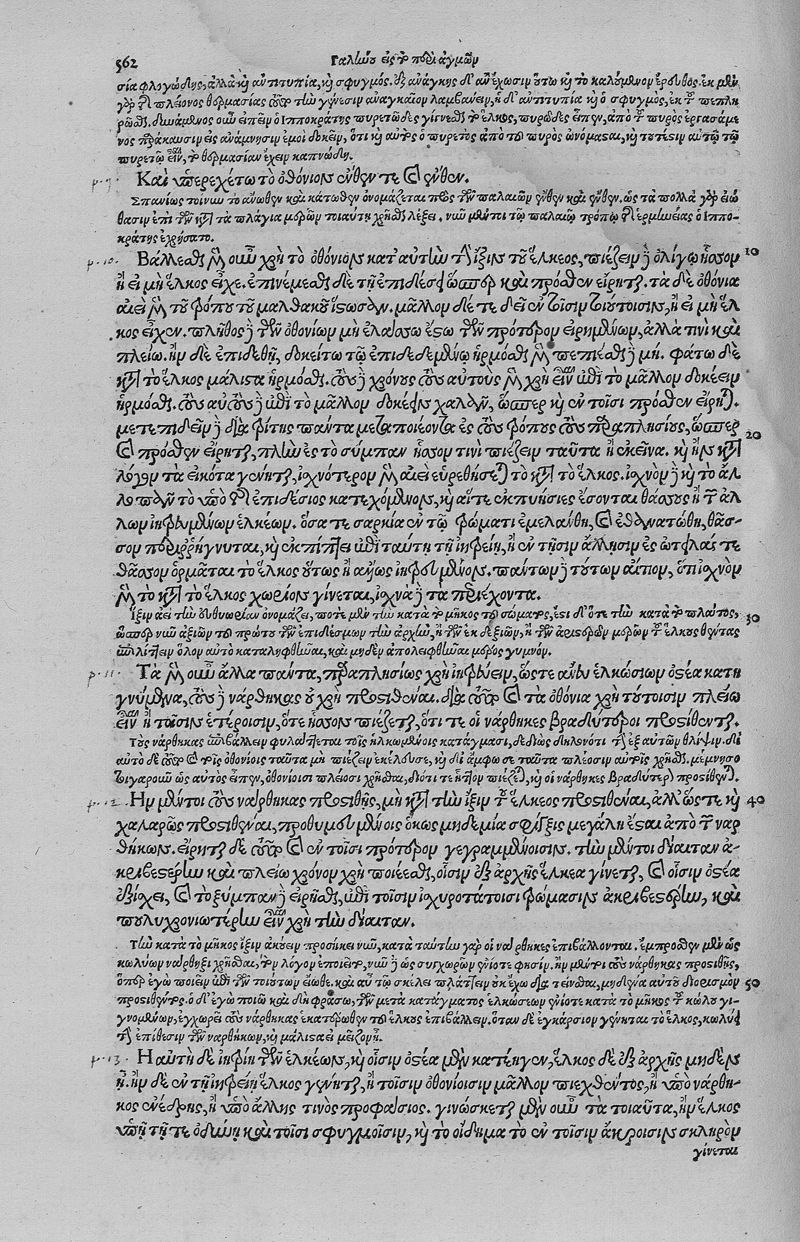 562 Γαληνοῦ εἰς τὸ περὶ ἀγμῶν
σία φλογώδης, ἀλλὰ καὶ ἀντιτυπία, καὶ σφυγμός. ἐξ ἀνάγκης δ' ἂν ἔχωσιν οὕτω καὶ τὸ καλούμενον ἔρευθος. ἐκ μὲν
γὰρ τῆς πλείονος θερμασίας αὐτὸ τὴν γένεσιν ἀναγκαῖον λαμβάνειν, ἡ δ' ἀντιτυπία καὶ ὁ σφυγμὸς, ἐκ τοῦ πεπλη
ρῶσθαι. δυνάμενος οὖν εἰπεῖν ὁ Ἱπποκράτης πυρετῶδες γίγνεσθαι τὸ ἕλκος, πυρῶδες εἶπεν, ἀπὸ τοῦ πυρὸς ἐργασάμε
νος
πυρετῷ εἶναι, τὸ θερμασίαν ἔχειν καπνώδη.
p. 9. Καὶ ὑπερεχέτω τὸ ὀθόνιον ἔνθεν τε καὶ ἔνθεν.
Σπανίως τοίνυν τὸ ἄνωθεν καὶ κάτωθεν ὀνομάζεται πρὸς τῶν παλαιῶν ἔνθεν καὶ ἔνθεν, ὡς τὰ πολλὰ γὰρ εἰώ
θασιν ἐπὶ τῶν κατὰ τὰ πλάγια μερῶν τοιαύτῃ χρῆσθαι λέξει. νῦν μέντοι τῷ παλαιῷ τρόπῳ τῆς ἑρμηνείας ὁ Ἱππο-
κράτης ἐχρήσατο.
p. 10. Βάλλεσθαι μὲν οὖν χρὴ τὸ ὀθόνιον κατ' αὐτὴν τὴν ἴξιν τοῦ ἕλκεος, πιέζειν δὲ ὀλίγῳ ἧσσον 10
ἢ εἰ μὴ ἕλκος εἶχε. ἐπινέμεσθαι δὲ τῇ ἐπιδέσει ὥσπερ καὶ πρόσθεν εἴρηται. τὰ δὲ ὀθόνια
αἰεὶ μὲν τοῦ τρόπου τοῦ μαλθακοῦ ἔστωσαν. μᾶλλον δέ τε δεῖ ἐν τοῖσιν τοιούτοισιν, ἢ εἰ μὴ ἕλ
κος εἶχεν. πλῆθος δὲ τῶν ὀθονίων μὴ ἐλάσσω ἔστω τῶν πρότερον εἰρημένων, ἀλλά τινι καὶ
πλείω. ἢν δὲ ἐπιδεθῇ, δοκείτω τῷ ἐπιδεδεμένῳ ἡρμόσθαι μὲν πεπιέχθαι δὲ μή. φάτω δὲ
κατὰ τὸ ἕλκος μάλιστα ἡρμόσθαι. τοὺς δὲ χρόνους τοὺς αὐτοὺς μὲν χρὴ εἶναι ἐπὶ τὸ μᾶλλον δοκέειν
ἡρμόσθαι. τοὺς αὐτοὺς δὲ ἐπὶ τὸ μᾶλλον δοκέειν χαλᾶν, ὥσπερ καὶ ἐν τοῖσι πρόσθεν εἴρηται.
μετεπιδεῖν δὲ διὰ τρίτης πάντα μεταποιέοντα ἐς τοὺς τρόπους τοὺς παραπλησίους, ὥσπερ 20
καὶ πρόσθεν εἴρηται, πλὴν ἐς τὸ σύμπαν ἧσσον τινὶ πιέζειν ταῦτα ἢ ἐκεῖνα. καὶ ἢν κατὰ
λόγον τὰ εἰκότα γένηται, ἰσχνότερον μὲν αἰεὶ εὑρεθήσεται τὸ κατὰ τὸ ἕλκος. ἰσχνὸν δὲ καὶ τὸ ἄλ
λο πᾶν τὸ ὑπὸ τῆς ἐπιδέσιος κατεχόμενον, καὶ αἵ τε ἐκπυήσιες ἔσονται θάσσους ἢ τῶν ἄλ
λων ἰητρευμένων ἑλκέων. ὅσα τε σαρκία ἐν τῷ τρώματι ἐμελάνθη, καὶ ἐθανατώθη, θᾶσ-
σον περιρρήγνυται, καὶ ἐκπίπτει ἐπὶ ταύτῃ τῇ ἰητρείῃ, ἢ ἐν τῇσιν ἄλλῃσιν ἐς ὠτειλάς τε
θᾶσσον ὁρμᾶται τὸ ἕλκος οὕτως ἢ ἄλλως ἰητρευμένον. πάντων δὲ τούτων αἴτιον, ὅτι ἰσχνὸν
μὲν τὸ κατὰ τὸ ἕλκος χωρίον γίνεται, ἰσχνὰ δὲ τὰ περιέχοντα.
Ἴξιν ἀεὶ τὴν εὐθυωρίαν ὀνομάζει, ποτὲ μὲν τὴν κατὰ τὸ μῆκος τοῦ σώματος, ἔστι δ' ὅτε τὴν κατὰ τὸ πλάτος, 30
ὥσπερ νῦν ἀξιῶν τοῦ πρώτου τῶν ἐπιδέσμων τὴν ἀρχὴν, ἢ τῶν ἐκ δεξιῶν, ἢ τῶν ἀριστερῶν μερῶν τοῦ ἕλκους θέντας
ἑλίττειν ὅλον αὐτὸ καταληφθῆναι, καὶ μηδὲν ἀπολειφθῆναι μέρος γυμνόν.
p. 11. Τὰ μὲν οὖν ἄλλα πάντα, παραπλησίως χρὴ ἰητρεύειν, ὥστε ἄνευ ἑλκώσιων ὀστέα κατη
γνύμενα, τοὺς δὲ νάρθηκας οὐ χρὴ προστιθέναι. διὰ τοῦτο καὶ τὰ ὀθόνια χρὴ τούτοισιν πλείω
εἶναι ἢ τοῖσιν ἑτέροισιν, ὅτε ἧσσον πιέζεται, ὅτι τε οἱ νάρθηκες βραδύτεροι προστίθενται.
Τοὺς νάρθηκας ἐπιβάλλειν φυλάττεται τοῖς ἡλκωμένοις κατάγμασι, δεδιὼς δηλονότι τὴν ἐξ αὐτῶν θλῖψιν. δι
αὐτὸ δὲ τοῦτο καὶ τοῖς ὀθονίοις ταῦτα μὴ πιέζειν ἐκέλευσε, καὶ δι' ἄμφω δὲ ταῦτα πλέοσιν αὐτοῖς χρῆσθαι. μέμνησο
τοιγαροῦν ὡς αὐτὸς εἶπεν, ὀθονίοισι πλέοσι χρῆσθαι, διότι τε ἧττον πιέζεται, καὶ οἱ νάρθηκες βραδύτεροι προστίθενται.
p. 12. Ἢν μέντοι τοὺς νάρθηκας προστιθῇς, μὴ κατὰ τὴν ἴξιν τοῦ ἕλκεος προστιθέναι, ἄλλως τε καὶ 40
χαλαρῶς προστιθέναι, προθυμευμένοις ὅκως μηδεμία σφίγξις μεγάλη ἔσται ἀπὸ τῶν ναρ
θήκων. εἴρηται δὲ τοῦτο καὶ ἐν τοῖσι πρότερον γεγραμμένοισιν. τὴν μέντοι δίαιταν ἀ-
κριβεστέρην καὶ πλείω χρόνον χρὴ ποιέεσθαι, οἷσιν ἐξ ἀρχῆς ἕλκεα γίνεται, καὶ οἷσιν ὀστέα
ἐξίσχει, καὶ τὸ ξύμπαν δὲ εἰρῆσθαι, ἐπὶ τοῖσιν ἰσχυροτάτοισι τρώμασιν ἀκριβεστέρην, καὶ
πουλυχρονιωτέρην εἶναι χρὴ τὴν δίαιταν.
Τὴν κατὰ τὸ μῆκος ἴξιν ἀκούειν προσήκει νῦν, κατὰ ταύτην γὰρ οἱ νάρθηκες ἐπιβάλλονται. ἔμπροσθεν μὲν ὡς
κωλύων νάρθηξι χρῆσθαι, τὸν λόγον ἐποιεῖτο, νῦν δὲ ὡς συγχωρῶν ἐνίοτε φησίν. ἢν μέντοι τοὺς νάρθηκας προστιθῇς,
ὅπερ ἐγὼ ποιεῖν ἐπὶ τῶν τοιούτων εἴωθα.
προστιθέντος. ὃ δ' ἐγὼ ποιῶ καὶ δὴ φράσω, τῶν μετὰ κατάγματος ἑλκώσεων ἐνίοτε κατὰ τὸ μῆκος τοῦ κώλου γι-
γνομένων, ἐγχωρεῖ τοὺς νάρθηκας ἑκατέρωθεν τοῦ ἕλκους ἐπιβάλλειν. ὅταν δὲ ἐγκάρσιον γένηται τὸ ἕλκος, κωλύει
τὴν ἐπίθεσιν τῶν ναρθήκων, καὶ μάλιστα εἰ μεῖζον ᾖ.
p. 13. Ἡ αὐτὴ δὲ ἰητρείη τῶν ἑλκέων, καὶ οἷσιν ὀστέα μὲν κατέηγεν, ἕλκος δὲ ἐξ ἀρχῆς μηδὲν
ᾖ. ἢν δὲ ἐν τῇ ἰητρείῃ ἕλκος γένηται, ἢ τοῖσιν ὀθονίοισιν μᾶλλον πιεχθέντος, ἢ ὑπὸ νάρθη-
κος ἐνέδρης, ἢ ὑπὸ ἄλλης τινὸς προφάσιος. γινώσκεται μὲν οὖν τὰ τοιαῦτα, ἢν ἕλκος
ὑπῇ τῇ τε ὀδύνῃ καὶ τοῖσι σφυγμοῖσιν, καὶ τὸ οἴδημα τὸ ἐν τοῖσιν ἄκροισιν σκληρὸν
γίνεται